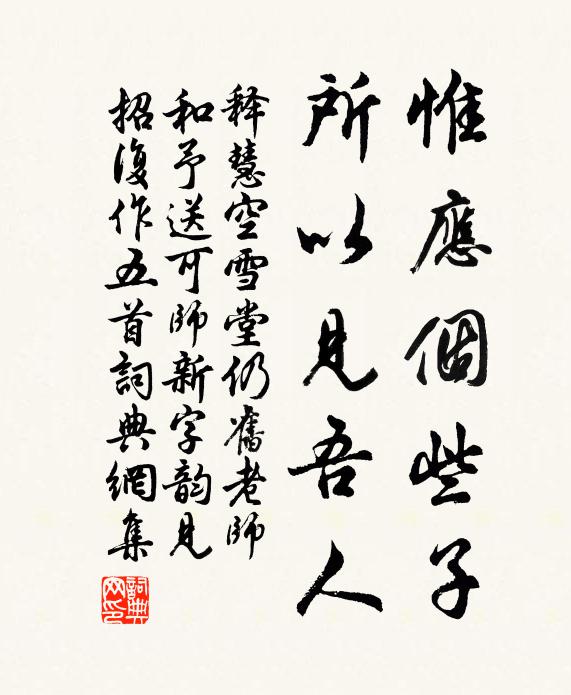 惟應個些子
所以見吾人
释慧空雪堂仍舊老師
和予送可師新字韵見
招復作五首詞典網集
詞典网印